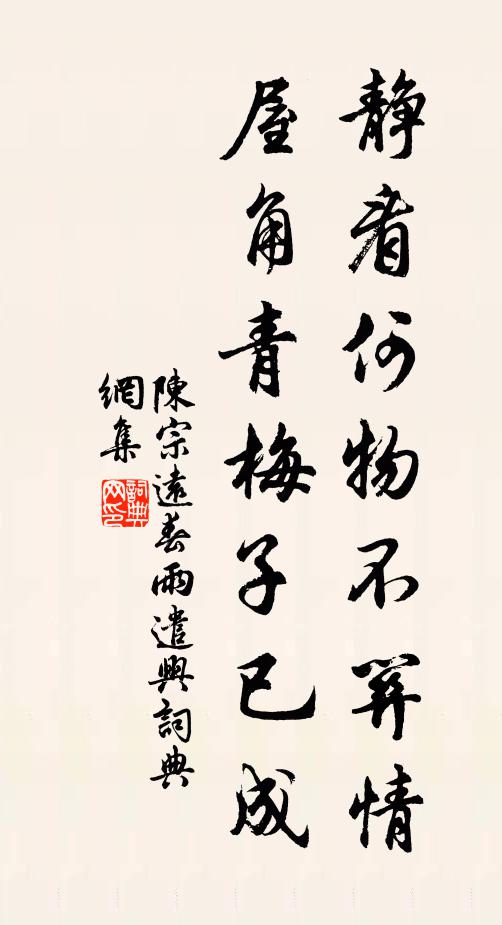 静看何物不關情
屋角青梅子已成
陳宗遠春雨遣興詞典
網集
詞典網印